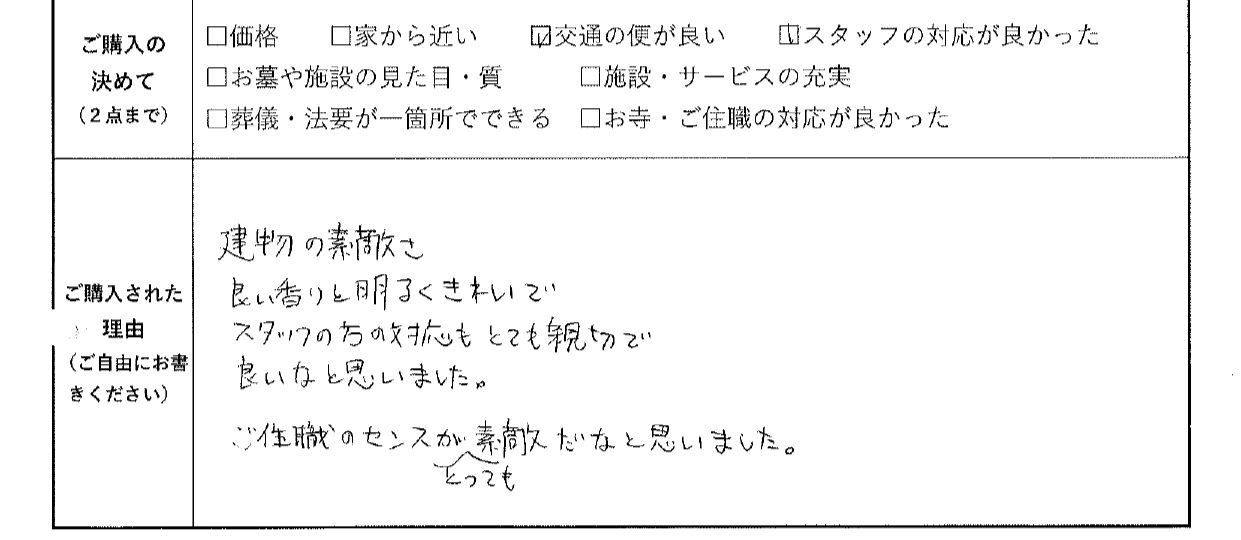 ご購入の
決めて
（２点まで）
□価格 □家から近い ☑交通の便が良い ☑スタッフの対応が良かった
□お墓や施設の見た目・質 □施設・サービスの充実
□葬儀・法要が一箇所でできる □お寺・ご住職の対応が良かった
ご購入された
理由
（ご自由にお書
きください）
建物の素敵さ
良い香りと明るくきれいで
スタッフの方の対応もとても親切で
良いなと思いました。
ご住職のセンスが素敵だなと思いました。
とっても